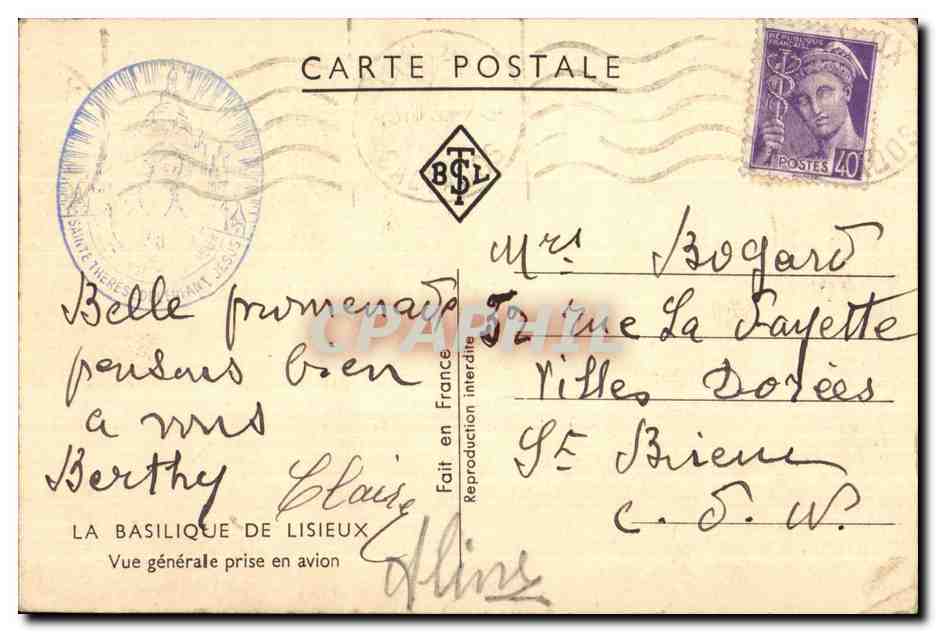 CARTE POSTALE
REPUBLIQUE
FRANÇAISE
POSTES 40
B S L
SAINTE THERESE ENFANT JESUS
Belle promenade
pensons bien
a vous
Berthy Claire
Aline
LA BASILIQUE DE LISIEUX
Vue générale prise en avion
Fait en France
Reproduction interdite
CPAPHIL
Mrs Bogard
52 rue La Fayette
Villes Dorées
St Brieuc
C. d. N.